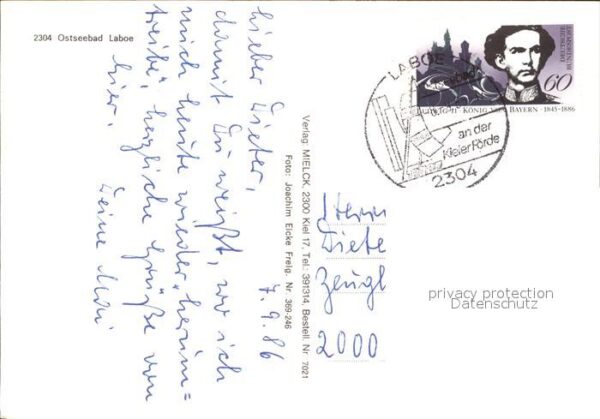 2304 Ostseebad Laboe
7.9.86
Lieber Dieter,
damit Du weißt, wo ich
mich heute wieder "herum=
treibe", herzliche Grüße von
hier.
Deine
Verlag: MIELCK, 2300 Kiel 17, Tel.: 391314, Bestell. Nr 7021
Foto: Joachim Eicke Freig. Nr. 369-246
Herrn
Diete
Zeugl
2000
LABOE
an der
Kieler Förde
2304
DEUTSCHE
BUNDESPOST
60
LUDWIG II · KÖNIG VON BAYERN · 1845-1886
privacy protection
Datenschutz